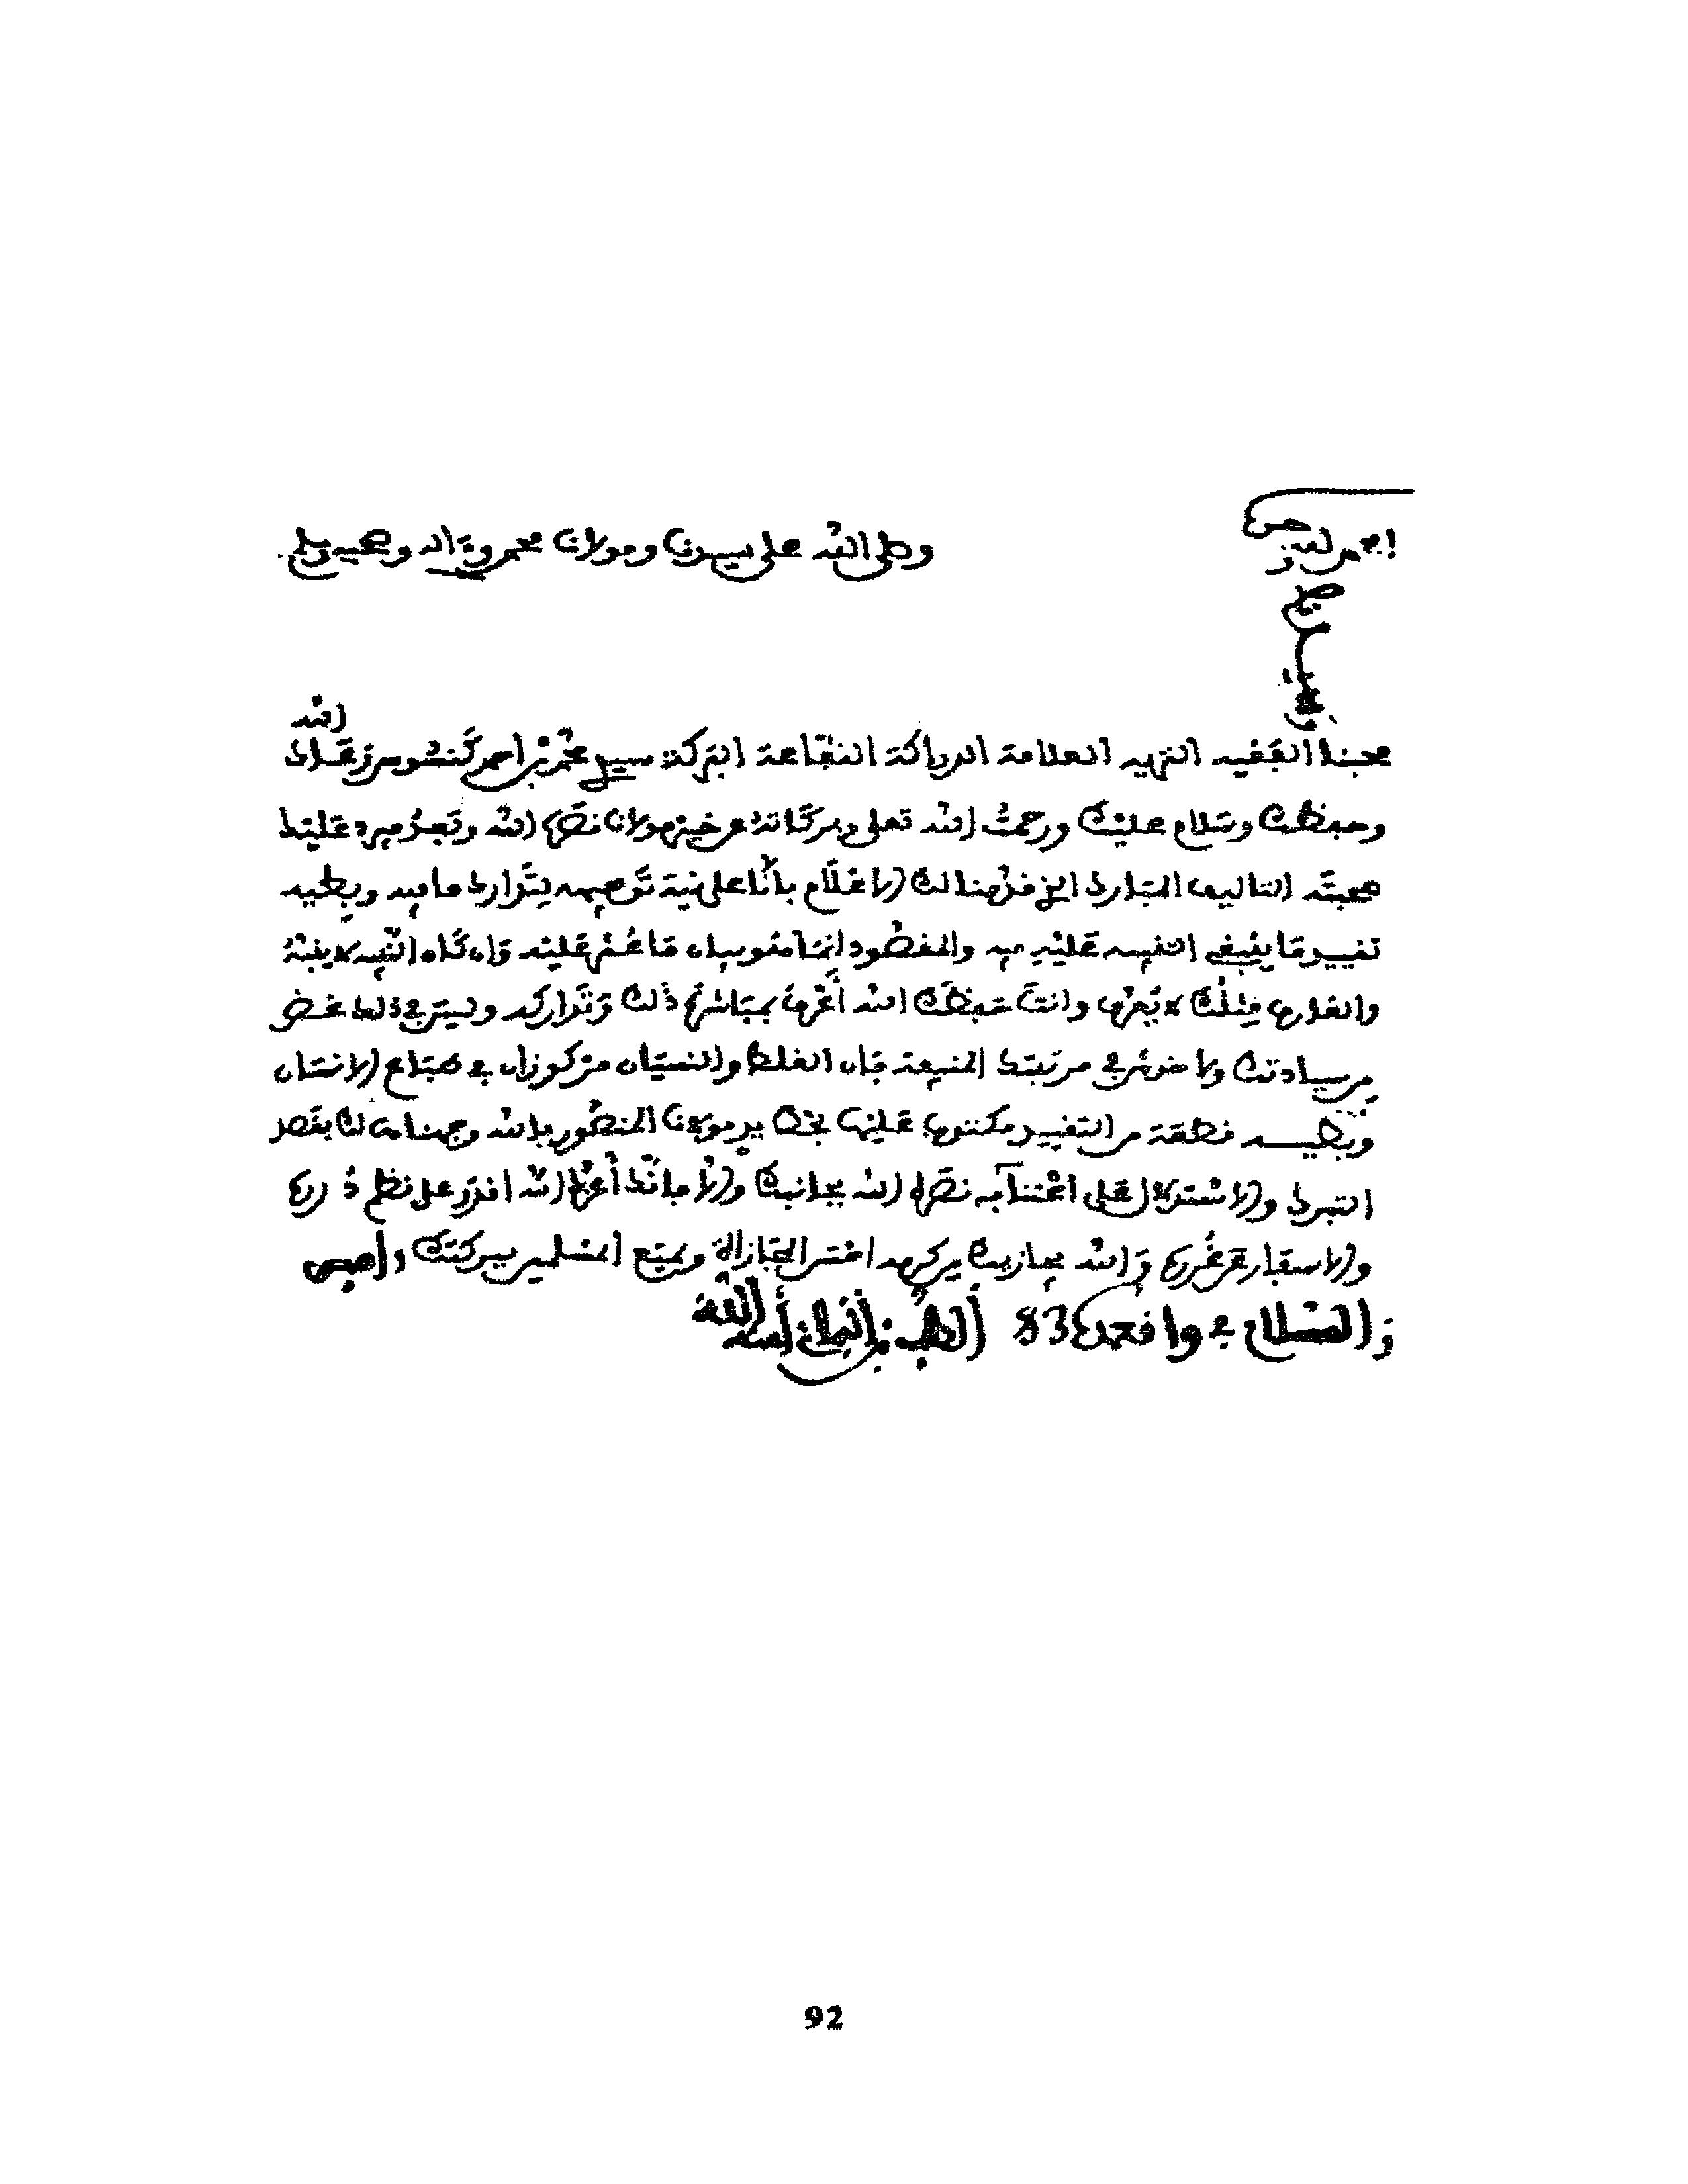 الحمد لله وحده
وصلى الله على سيدنا ومولانا محمد وءاله وصحبه وسلم
محبنا الفقيه النزيه العلامة الدراكة النفاعة البركة سيدي محمد بن احمد كنسوس رعاك الله
وحفظك وسلام عليك ورحمت الله تعلى وبركاته عن خير مولانا نصره الله وبعد فيرد عليك
صحبته التاليف المبارك الذي قدمنا لك الاعلام بأنا على نية توجيهه لتدارك ما فيه ويطيه
تقييد ما ينبغي التنبيه عليه فيه والمقصود انما هو بيان ما عثر عليه وان كان النبيه لا ينبه
والقدوة مثلك لا يعرف وانت حفظك الله أعرف بمباشرة ذلك وتداركه وليس في ذلك غض
من سيادتك ولا خدش في مرتبتك المنيعة فان الغلط والنسيان مركوزان في طباع الانسان
وبطيه بطقة من التقييد مكتوب عليها بخط يد مولانا المنصور بالله وجهناها لك بقصد
التبرك والاستدلال على اعتنائه نصره الله بجانبك والا فانت أعزك الله اقدر على نظم درره
والاسفار عن غرره والله يجازيك عن كريم اخلاقك المجازاة ويمتع المسلمين ببركتك ءامين
والسلام في و افعدة 83 الطيب بن اليماني أمنه الله
92